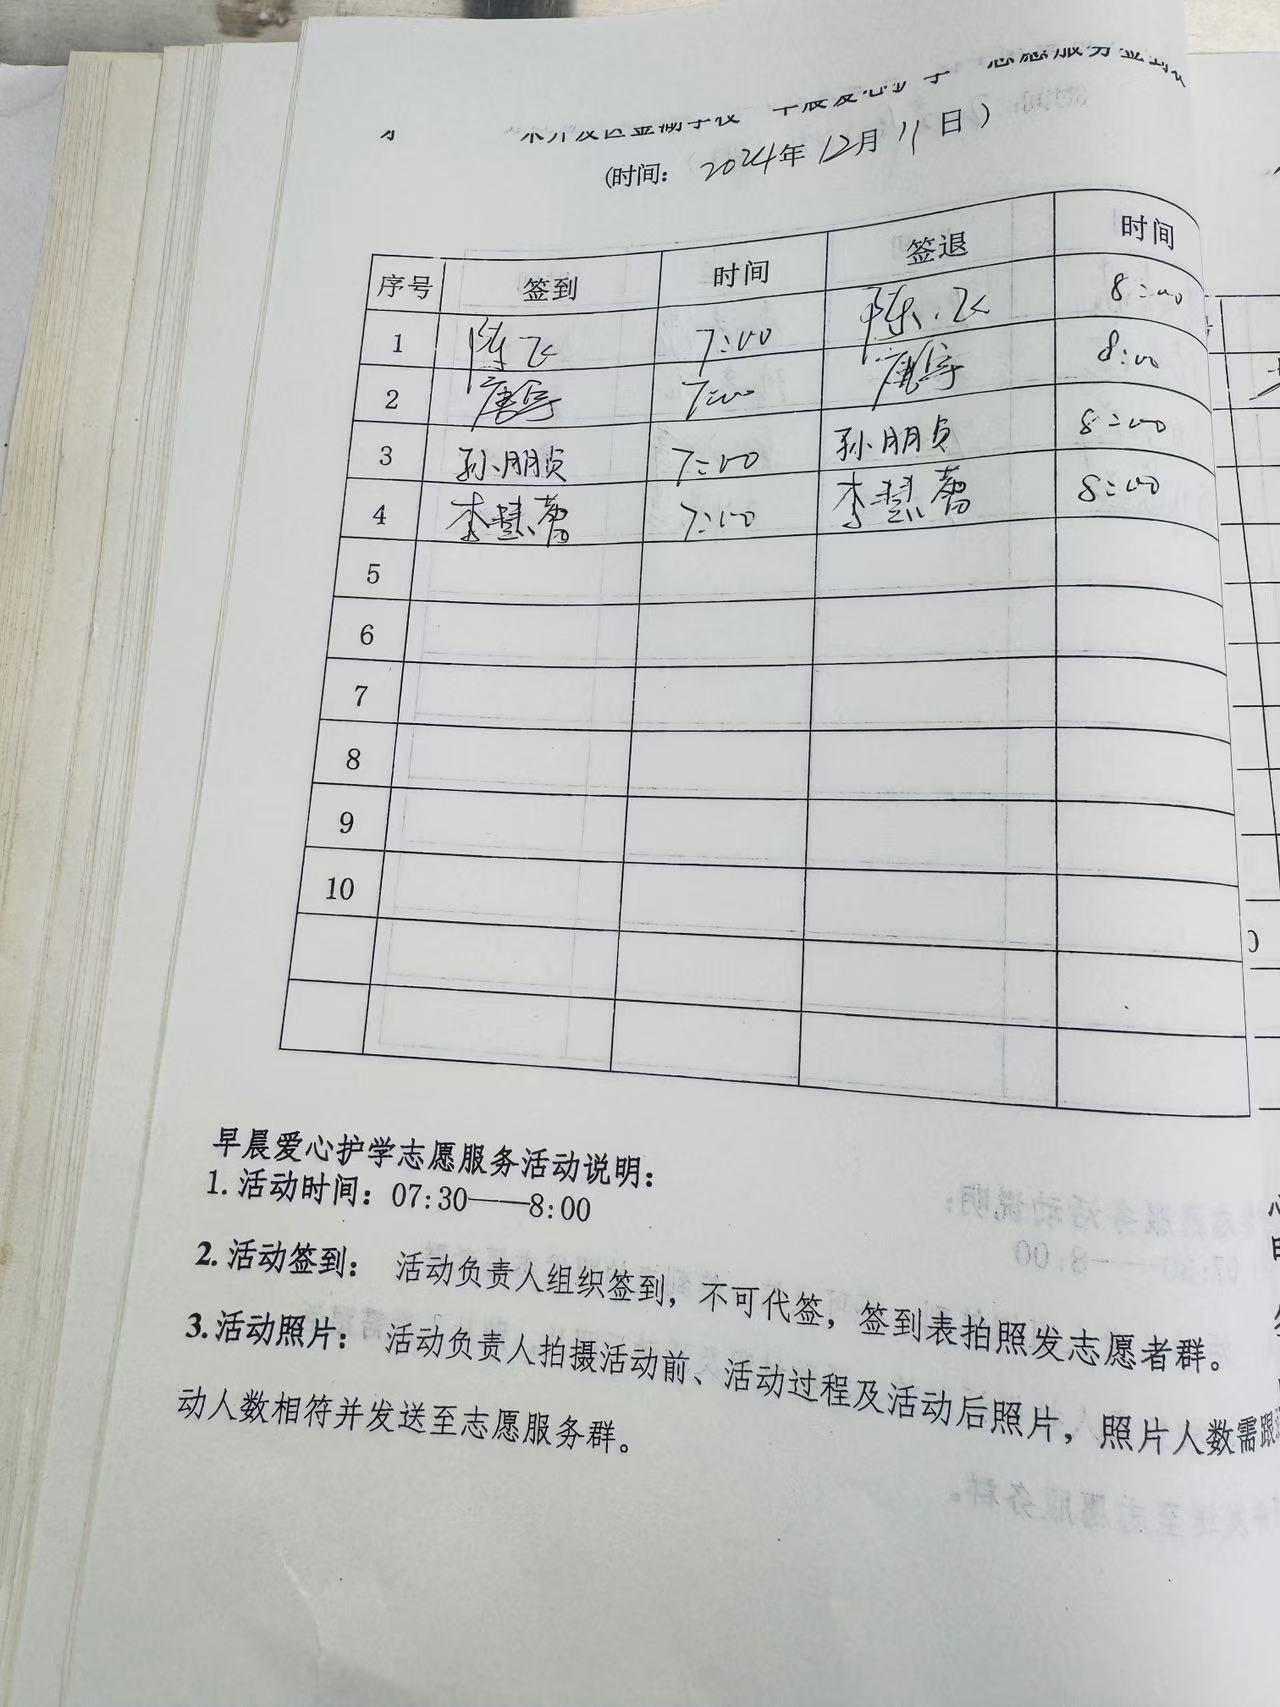 术开发区金湖学校 "早晨爱心护学" 志愿服务签到表
(时间： 2024年 12月 11日)
序号 签到 时间 签退 时间
1 陈飞 7:00 陈飞 8:00
2 唐宇 7:00 唐宇 8:00
3 孙朋贞 7:00 孙朋贞 8:00
4 李慧蕾 7:00 李慧蕾 8:00
5
6
7
8
9
10
早晨爱心护学志愿服务活动说明：
1. 活动时间：07:30——8:00
2. 活动签到： 活动负责人组织签到，不可代签，签到表拍照发志愿者群。
3. 活动照片： 活动负责人拍摄活动前、活动过程及活动后照片，照片人数需跟
动人数相符并发送至志愿服务群。